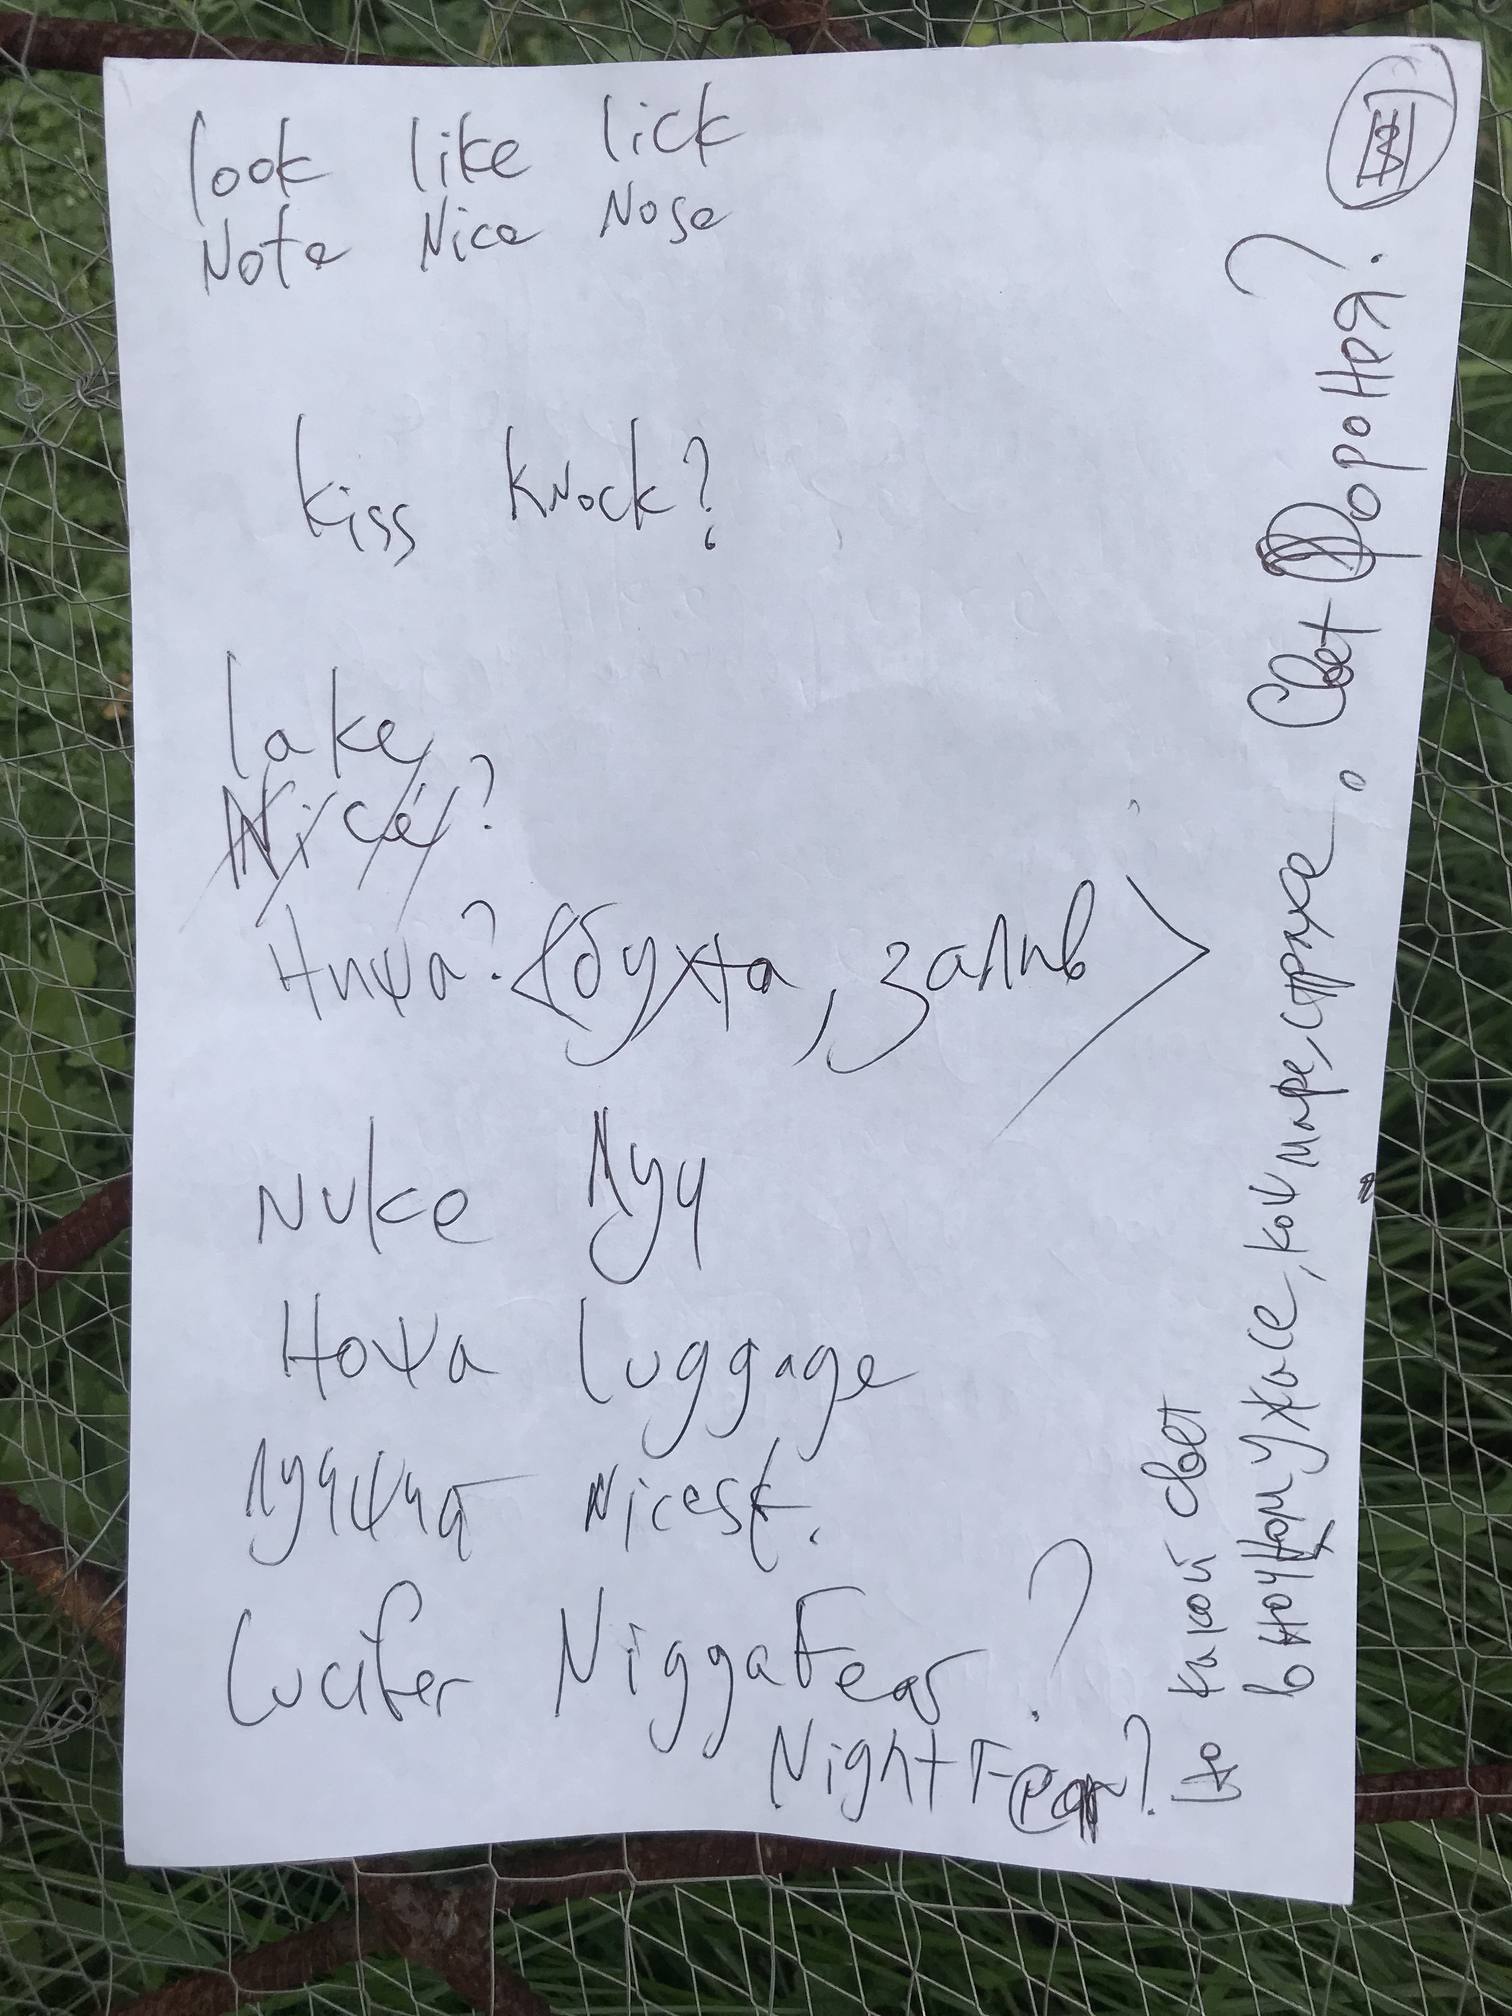 look like lick
Note Nice Nose
kiss knock?
lake
Nice?
Ниѱа? <бухта, залив>
Nuke Луч
Ноѱа luggage
Лучѱчя Nicest.
Lucifer NiggaFear?
NightFear?
какой свет
в ночном ужасе, коѱмаре, страхе. Свет Фороня?